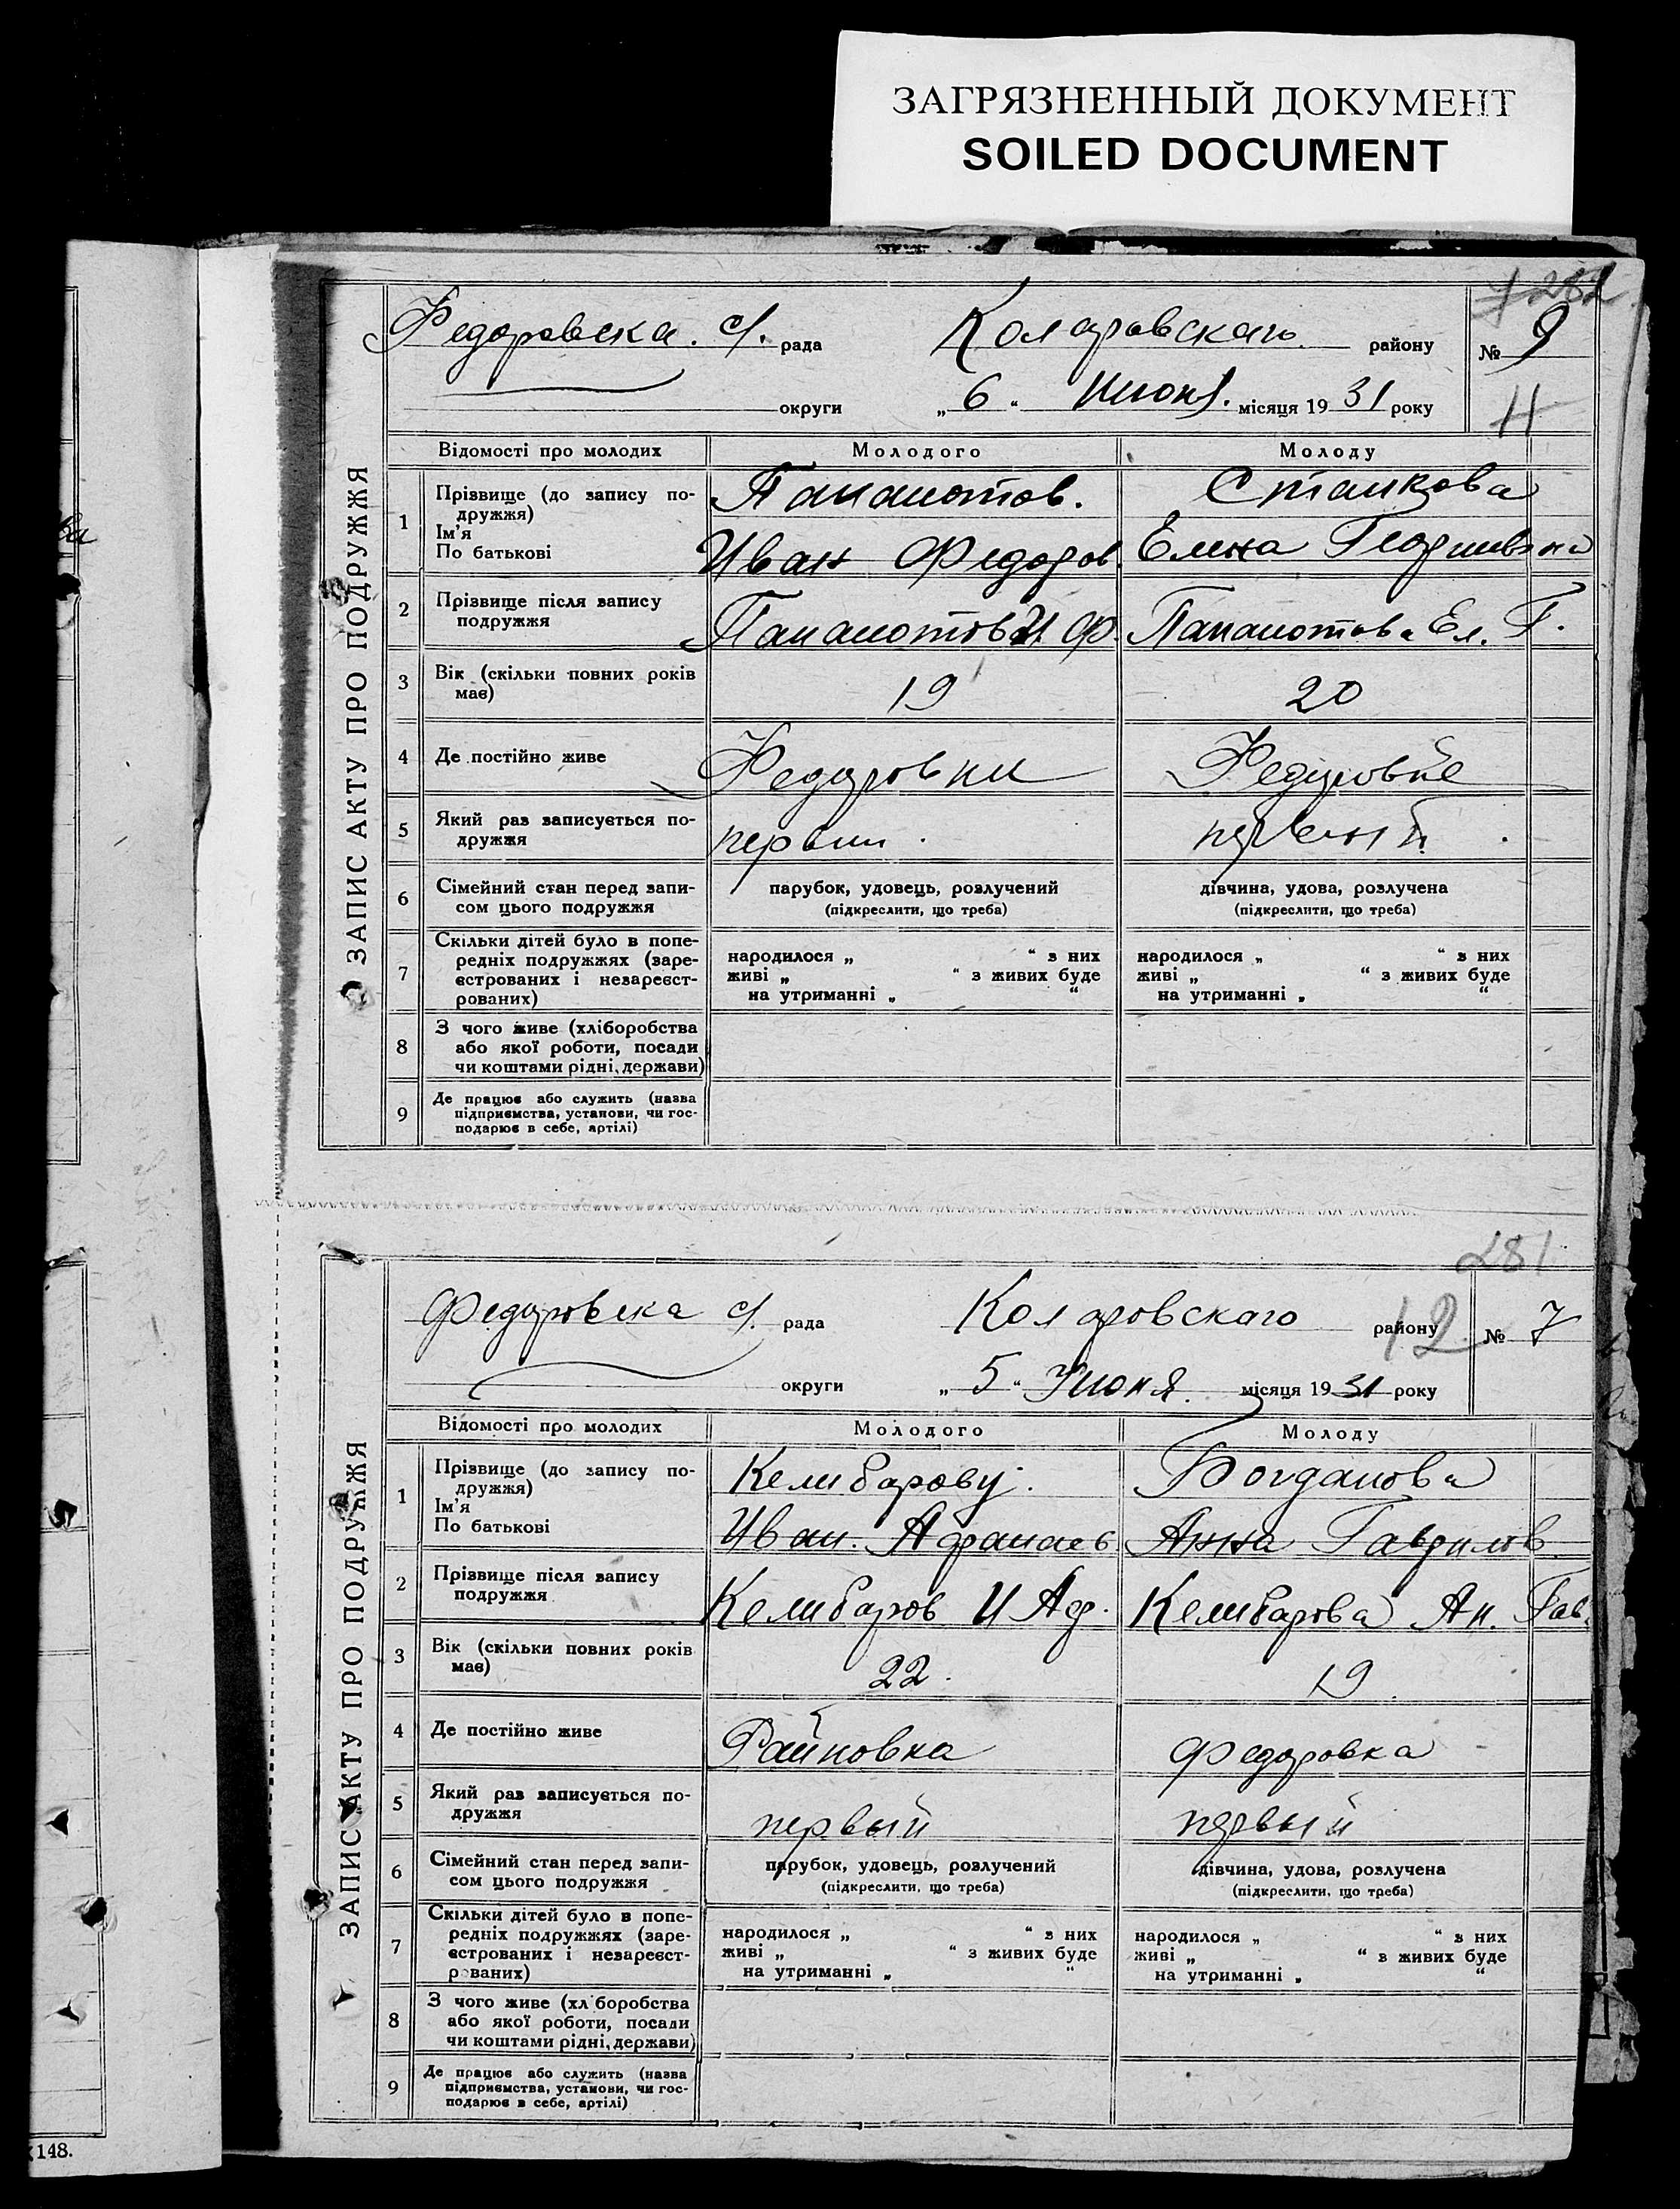 ЗАГРЯЗНЕННЫЙ ДОКУМЕНТ
SOILED DOCUMENT
282
ЗАПИС АКТУ ПРО ПОДРУЖЖЯ
Федоровска. с/. рада Коларовскаго району № 9
округи „ 6 “ Июня. місяця 19 31 року
11
Відомості про молодих Молодого Молоду
1 Прізвище (до запису по-
дружжя)
Ім'я
По батькові
Панаиотов. Станкова
Иван Федоров. Елена Георгиевна
2 Прізвище після запису
подружжя
Панаиотов И Ф. Панаиотова Ел. Г.
3 Вік (скільки повних років
має)
19 20
4 Де постійно живе
Федоровки Федоровке
5 Який раз записується по-
дружжя
первии. первый.
6 Сімейний стан перед запи-
сом цього подружжя
парубок, удовець, розлучений дівчина, удова, розлучена
(підкреслити, що треба) (підкреслити, що треба)
7 Скільки дітей було в попе-
редніх подружжях (заре-
єстрованих і незареєст-
рованих)
народилося „ “ з них народилося „ “ з них
живі „ “ з живих буде живі „ “ з живих буде
на утриманні „ “ на утриманні „ “
8 З чого живе (хліборобства
або якої роботи, посади
чи коштами рідні, держави)
9 Де працює або служить (назва
підприємства, установи, чи гос-
подарює в себе, артілі)
281
ЗАПИС АКТУ ПРО ПОДРУЖЖЯ
Федоровска с/. рада Коларовскаго району 12 № 7
округи „ 5 “ Июня. місяця 19 31 року
Відомості про молодих Молодого Молоду
1 Прізвище (до запису по-
дружжя)
Ім'я
По батькові
Келибарову. Богданова
Иван. Афанаев Анна Гаврилов
2 Прізвище після запису
подружжя
Келибаров И Аф. Келибарова Ан. Гав.
3 Вік (скільки повних років
має)
22. 19.
4 Де постійно живе
Райновка Федоровка
5 Який раз записується по-
дружжя
первый первый
6 Сімейний стан перед запи-
сом цього подружжя
парубок, удовець, розлучений дівчина, удова, розлучена
(підкреслити, що треба) (підкреслити, що треба)
7 Скільки дітей було в попе-
редніх подружжях (заре-
єстрованих і незареєст-
рованих)
народилося „ “ з них народилося „ “ з них
живі „ “ з живих буде живі „ “ з живих буде
на утриманні „ “ на утриманні „ “
8 З чого живе (хліборобства
або якої роботи, посади
чи коштами рідні, держави)
9 Де працює або служить (назва
підприємства, установи, чи гос-
подарює в себе, артілі)
148.